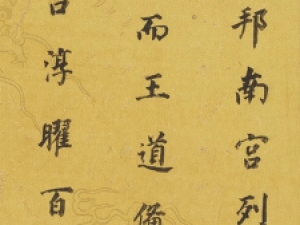 邦南宫列
而王道備
淳曜百